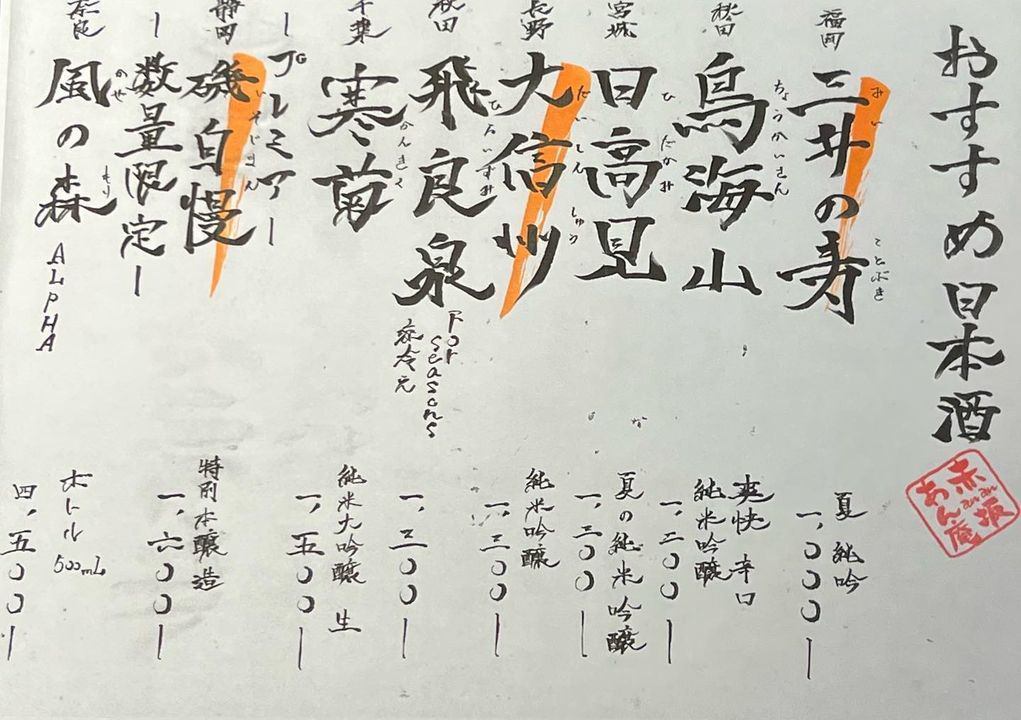 おすすめ日本酒
赤坂
anan
あん庵
福岡
三井の寿
みい
ことぶき
夏 純吟
一、〇〇〇ー
秋田
鳥海山
ちょうかいさん
爽快 辛口
純米吟醸
一、二〇〇ー
宮城
日高見
ひだかみ
夏の純米吟醸
一、三〇〇ー
長野
大信州
だいしんしゅう
純米吟醸
一、三〇〇ー
秋田
飛良泉
ひらいずみ
For seasons
一、三〇〇ー
千葉
寒菊
かんきく
純米大吟醸 生
一、五〇〇ー
ープレミアー
静岡
磯自慢
いそじまん
特別本醸造
一、六〇〇ー
ー数量限定ー
奈良
風の森 ALPHA
かぜ
もり
ボトル 500mL
四、五〇〇ー